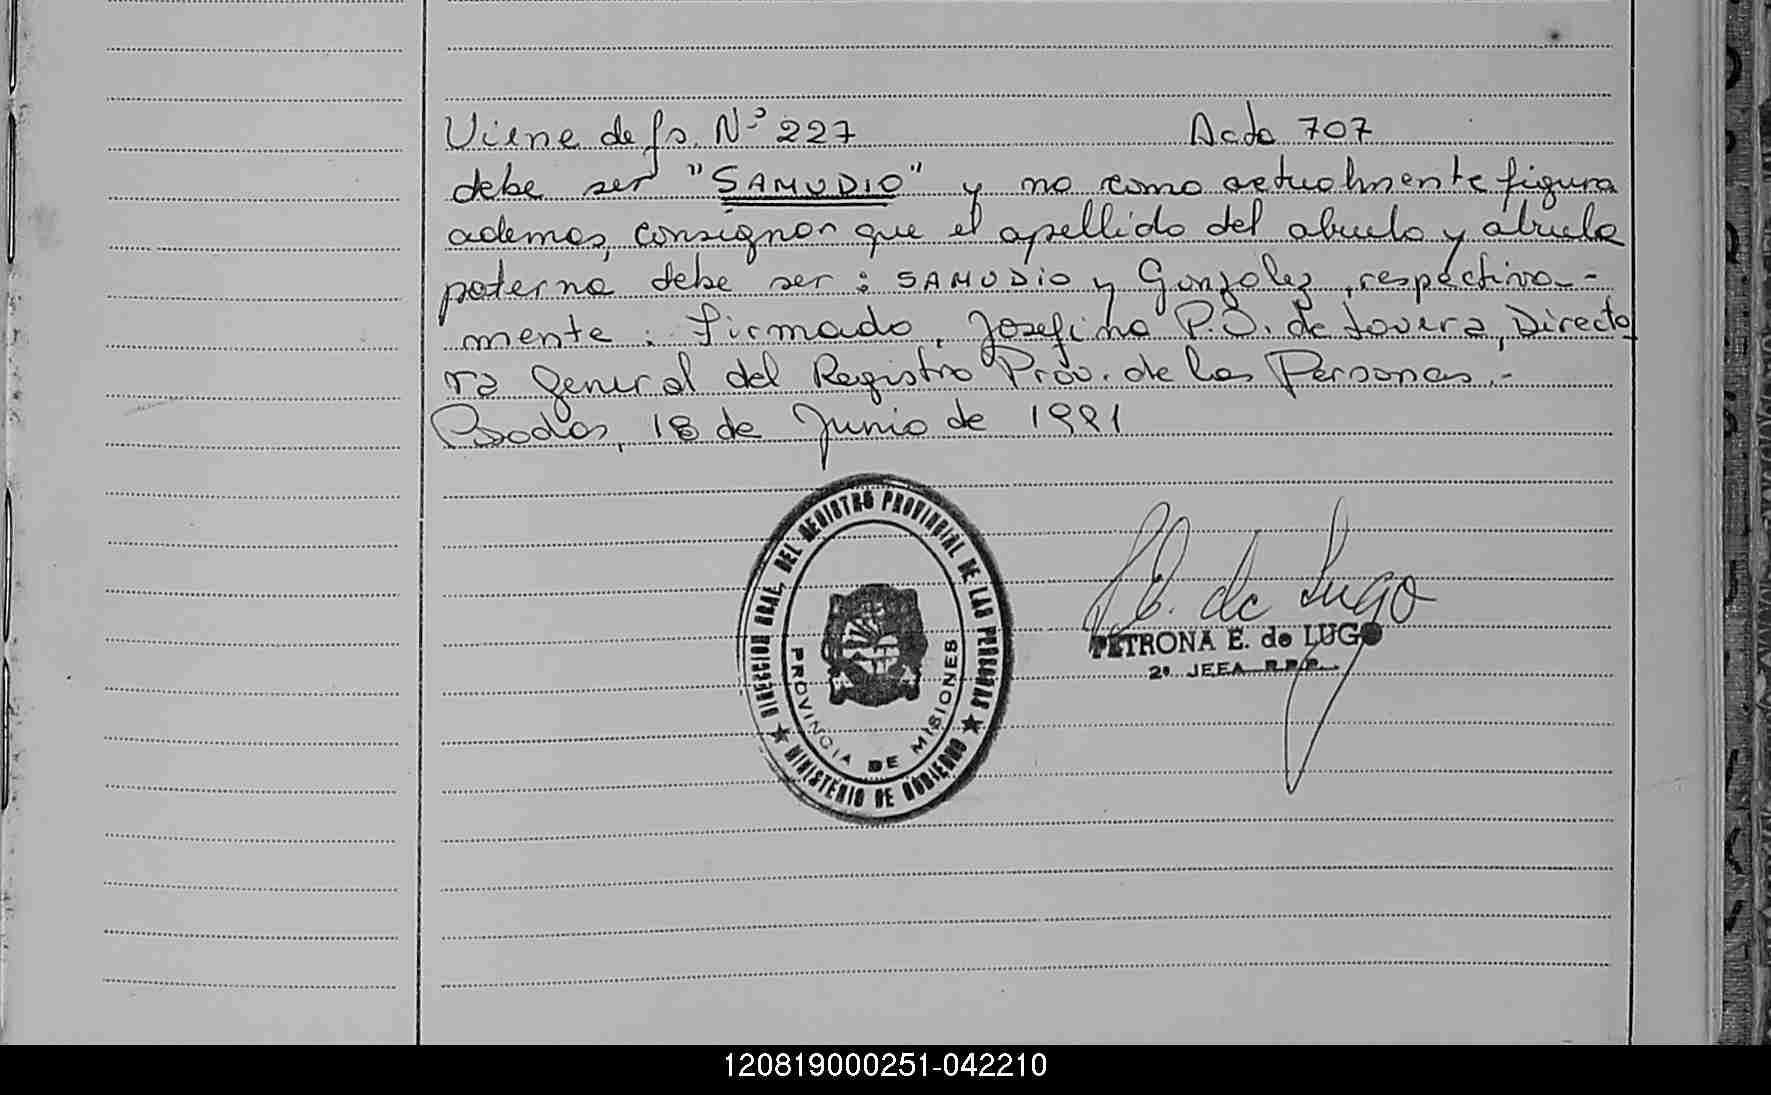 Viene de fs. Nº 227 Acta 707
debe ser "SAMUDIO" y no como actualmente figura
ademas, consignar que el apellido del abuelo y abuela
paterna debe ser : SAMUDIO y Gonzalez, respectiva-
mente : firmado, Josefina P.O. de Lovera, Directo
ra General del Registro Prov. de las Personas.-
Posadas, 18 de Junio de 1991
DIRECCION GRAL. DEL REGISTRO PROVINCIAL DE LAS PERSONAS
PROVINCIA DE MISIONES
★ MINISTERIO DE GOBIERNO ★
P.E. de Lugo
PETRONA E. de LUGO
2º JEFA R.P.P.
120819000251-042210